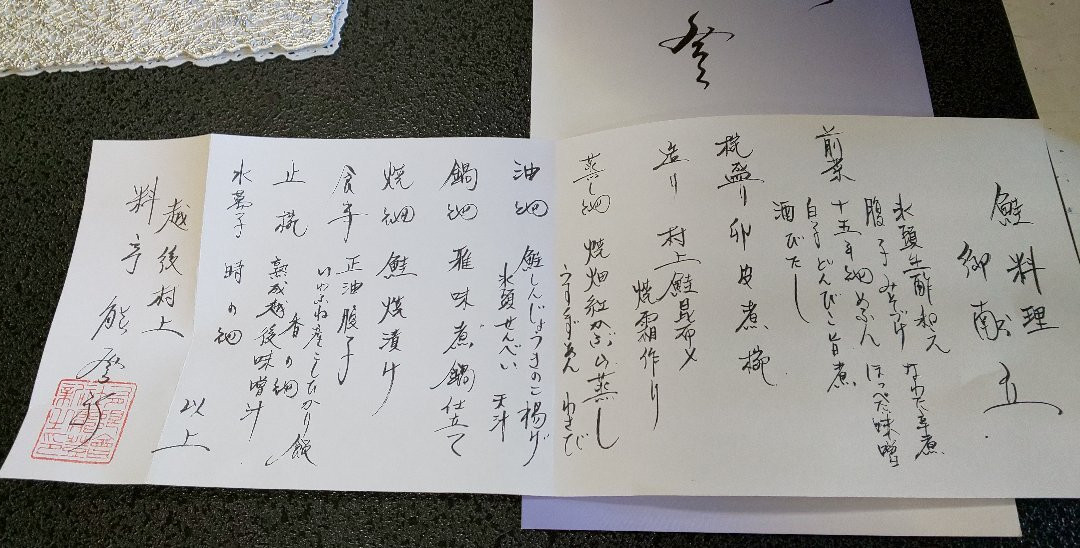 鮭料理
御献立
前菜
氷頭生酢和え なわた辛煮
腹子みそづけ ほっぺた味噌
十五年物めふん
白子どんびこ旨煮
酒びたし
椀盛り 卵皮煮椀
造り 村上鮭昆布〆
焼霜作り
蒸し物 焼畑紅かぶら蒸し
わさび
油物 鮭しんじょうきのこ揚げ
氷頭せんべい 天汁
鍋物 雅味煮鍋仕立て
焼物 鮭焼漬け
食事 正油腹子
いわふね産こしひかり飯
香の物
止椀 熟成越後味噌汁
水菓子 時の物
以上
越後村上
料亭 能登新